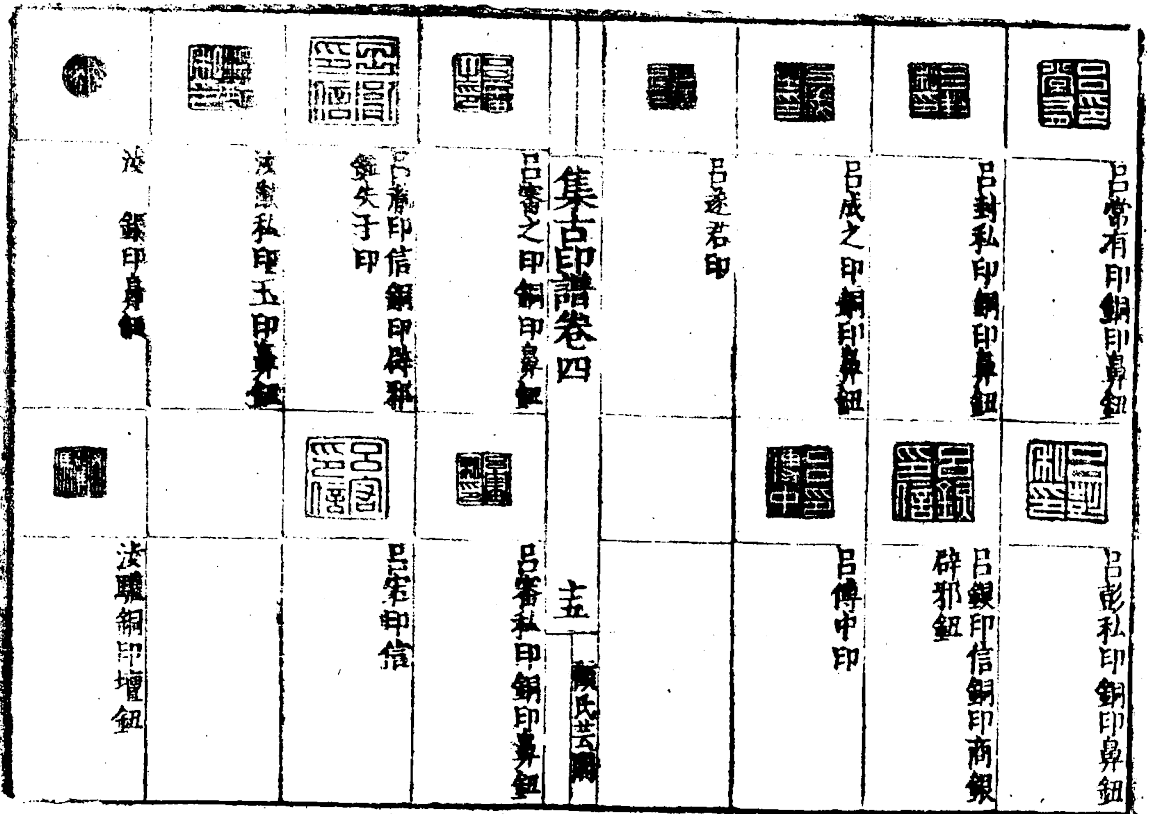 呂常有印銅印鼻鈕
呂彭私印銅印鼻鈕
呂封私印銅印鼻鈕
呂鍥印信銅印商銀
辟邪鈕
呂成之印銅印鼻鈕
呂傅中印
呂遂君印
集古印譜卷四
十五
顧氏芸閣
呂審之印銅印鼻鈕
呂審私印銅印鼻鈕
印信銅印辟邪
鈕失子印
呂印信
私印玉印鼻鈕
銀印鼻鈕
銅印壇鈕